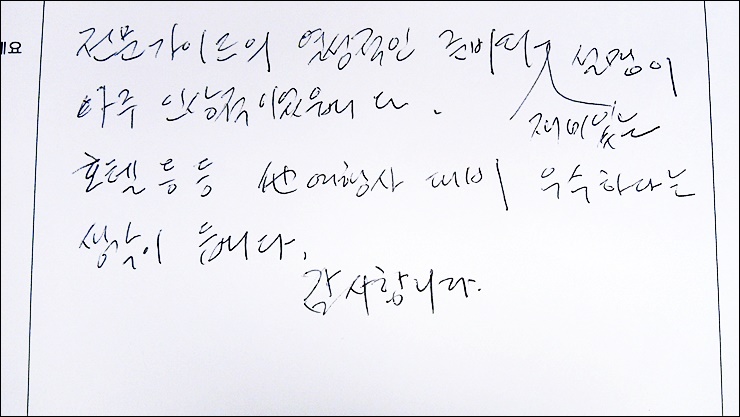 게요
전문가이드의 열성적인 준비와 설명이
재미있는
아주 인상적이었습니다.
호텔 등등 他여행사 대비 우수하다는
생각이 듭니다.
감사합니다.